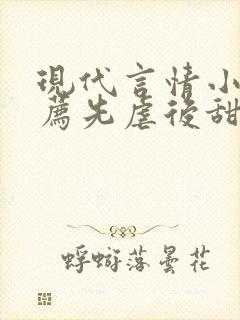 現代言情小
薦先虐後甜
蜉蝣落曇花